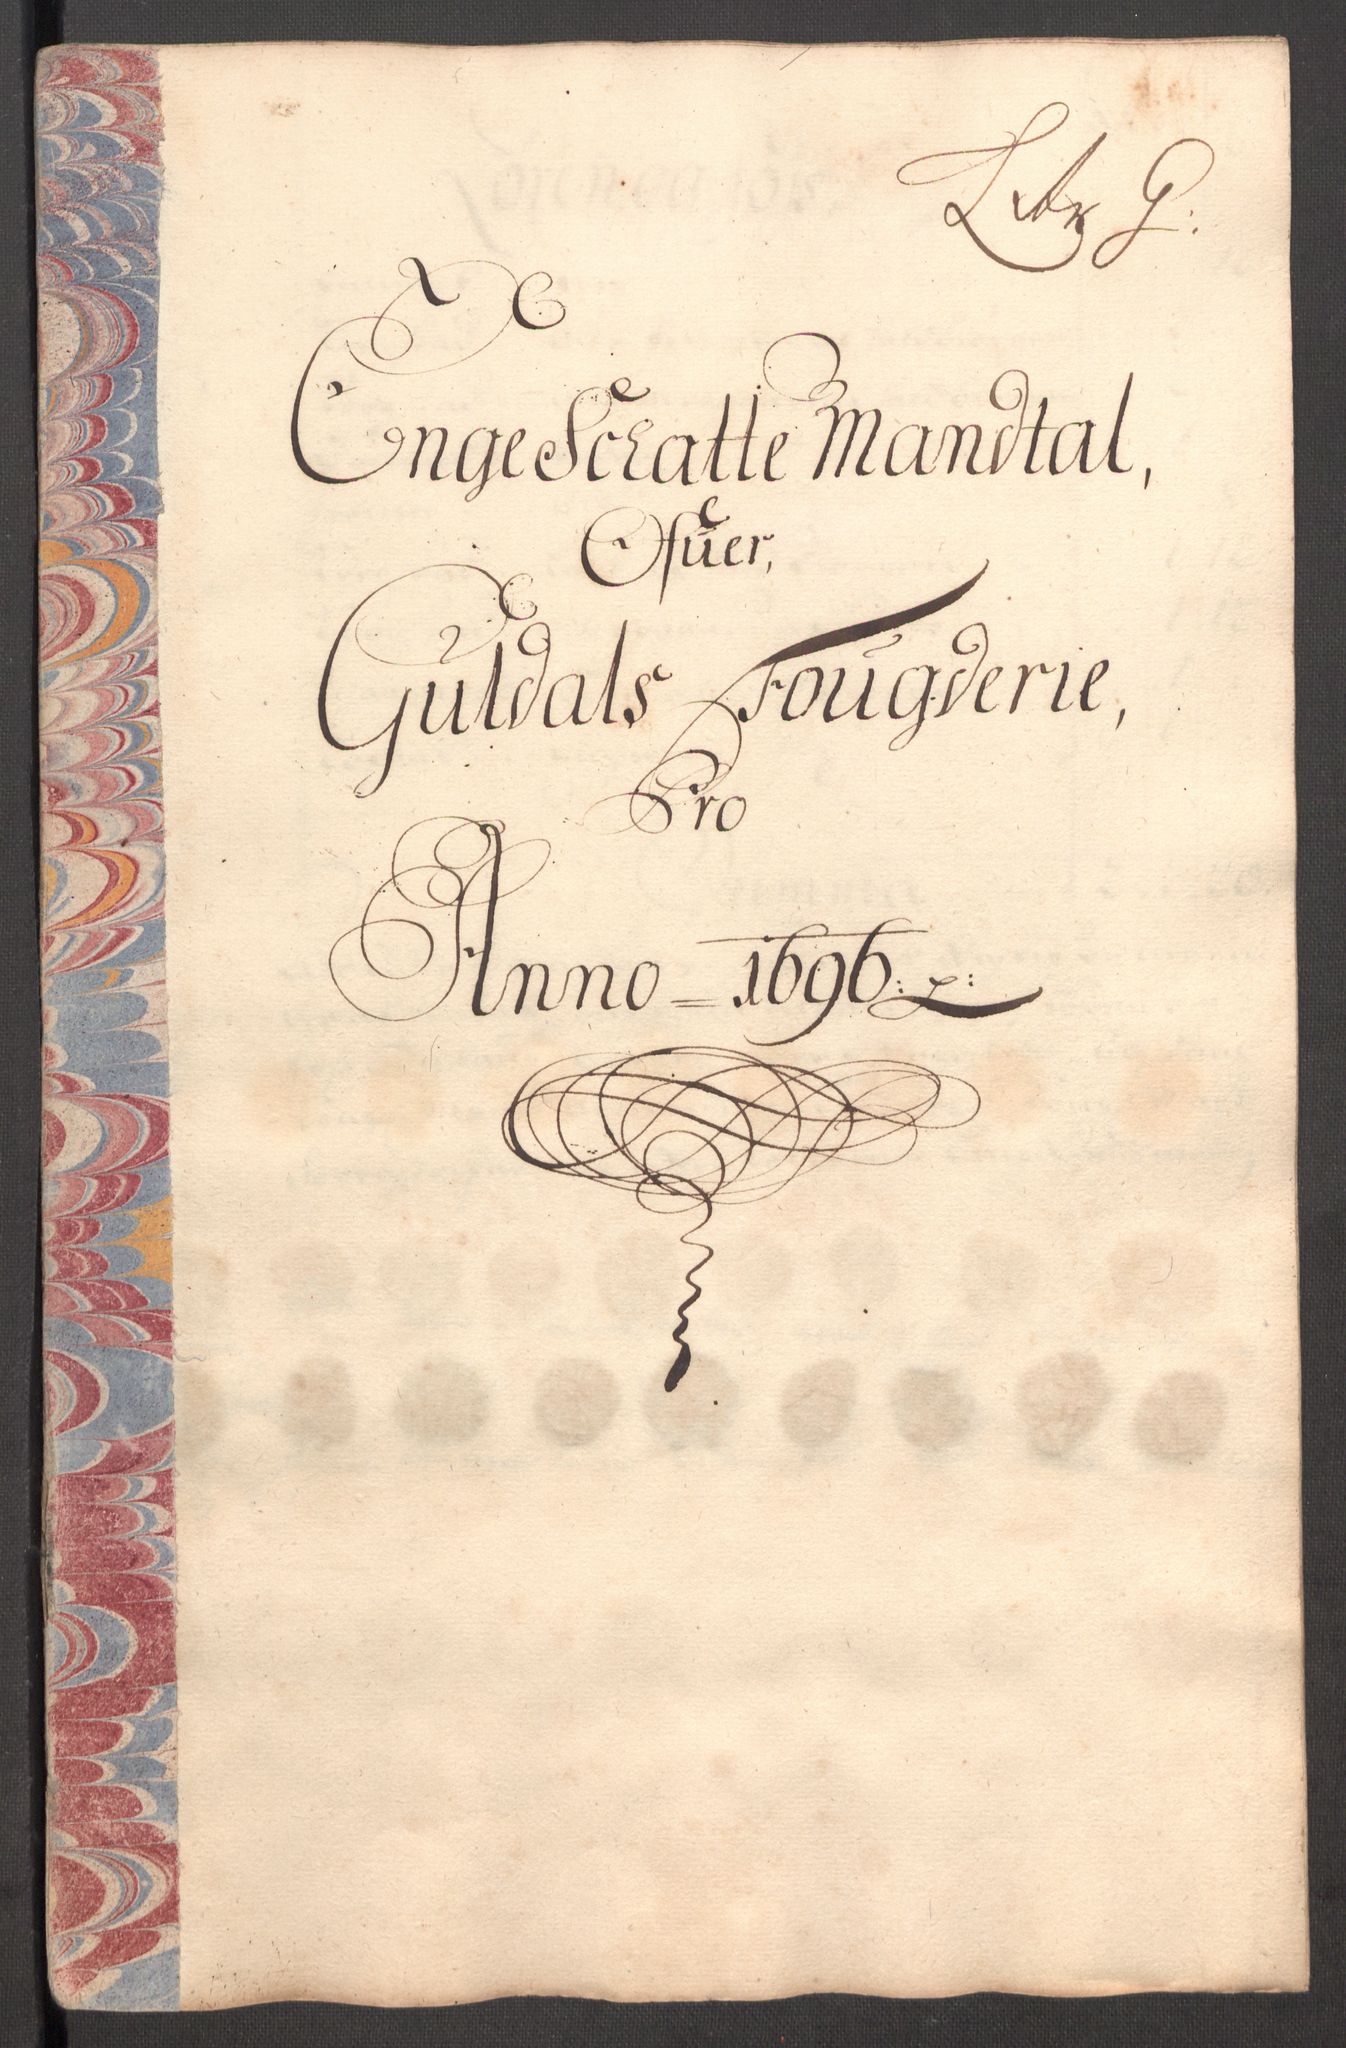 Litr G:
Enge Schatte Mandtal,
Ofuer,
Guldals Fougderie,
Pro
Anno = 1696: